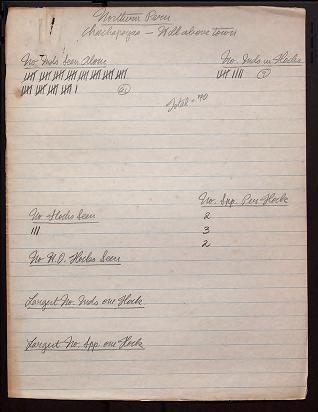 Northern Peru
Chachapoyas — Well above town
No. Inds Seen Alone
No. Inds in Flocks
61
9
Total = 70
No. Flocks Seen
III
No. Spp. Per Flock
2
3
2
No. H.O. Flocks Seen
Largest No. Inds one Flock
Largest No. Spp. one Flock